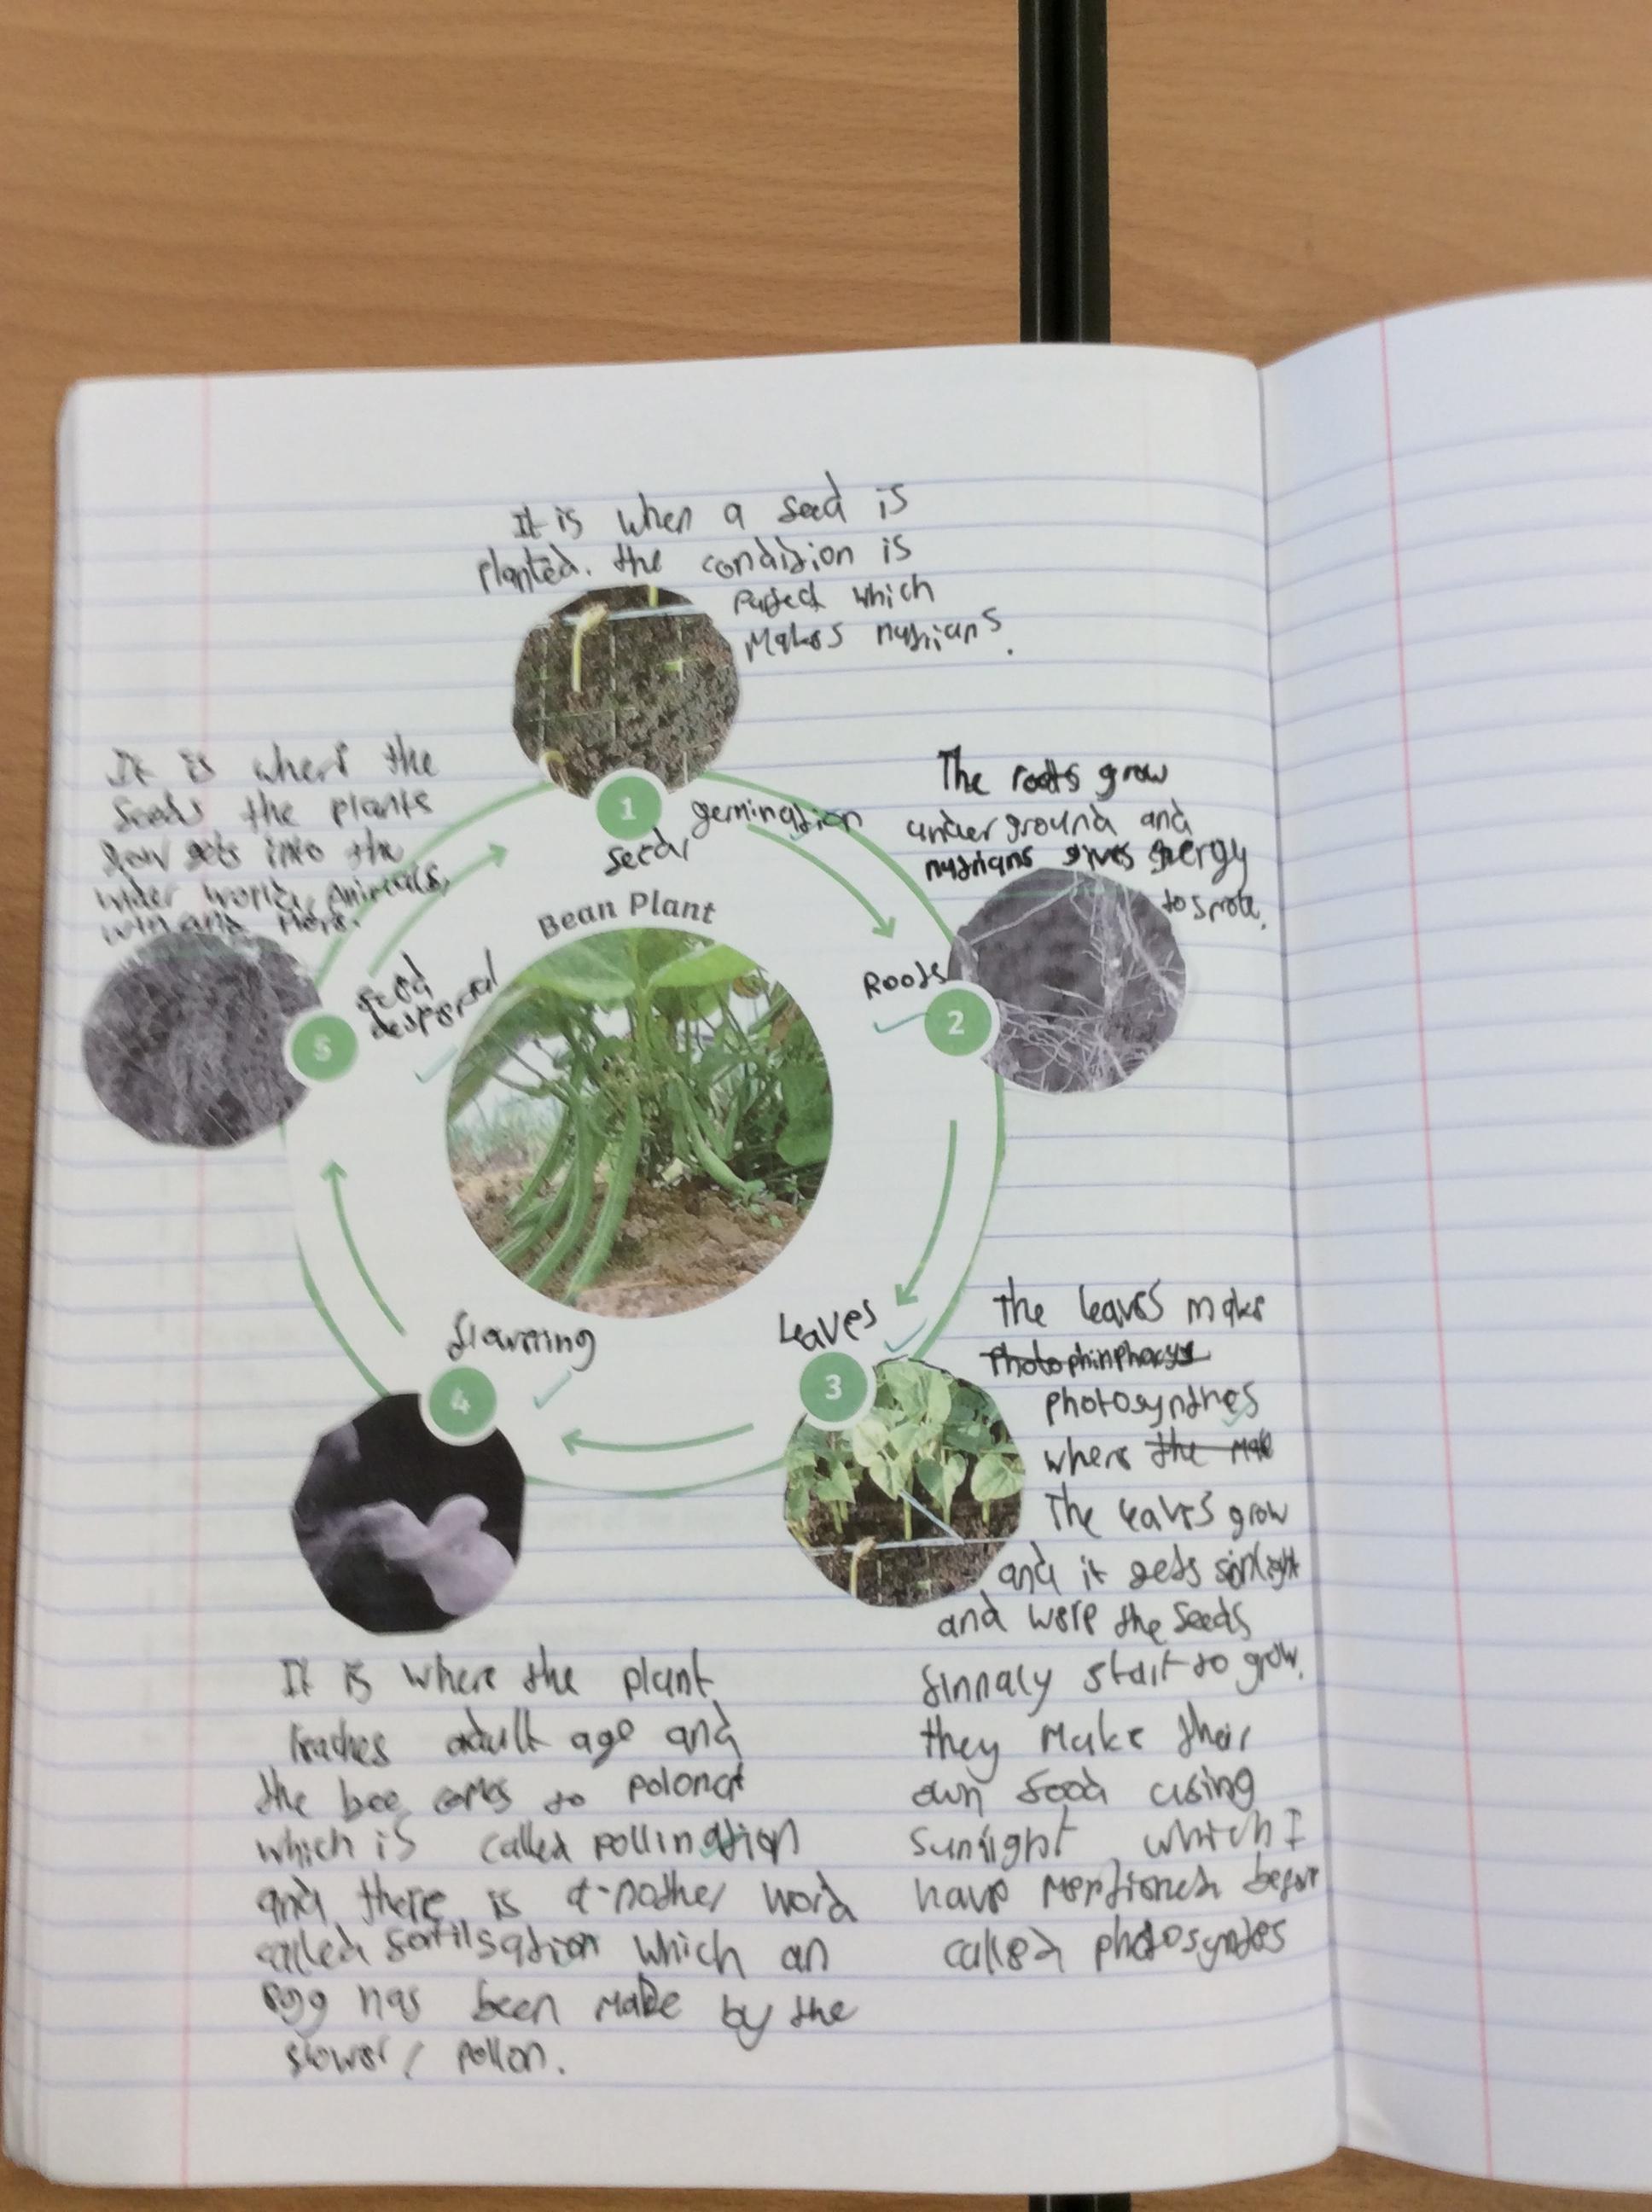 It is when a seed is
planted. the condision is
which
Makes nutrians.
1
germination
seed
The roots grow
under ground and
nutrians gives energy
to sprote.
Roots
2
Bean Plant
Leaves
3
The leaves make
photosynthes
where the Make
The leaves grow
and it gets sinlight
and were the seeds
finnaly start to grow.
they Make their
own food using
sunlight which I
have mentioned before
called photosyntes
flowering
4
It is where the plant
reaches adult age and
the bee comes to polonat
which is called pollination
and there is a-nother word
called fortilsation which an
egg has been made by the
flower / pollon.
seed
despersal
5
It is where the
seeds the plants
grow gets into the
wider world, animals,